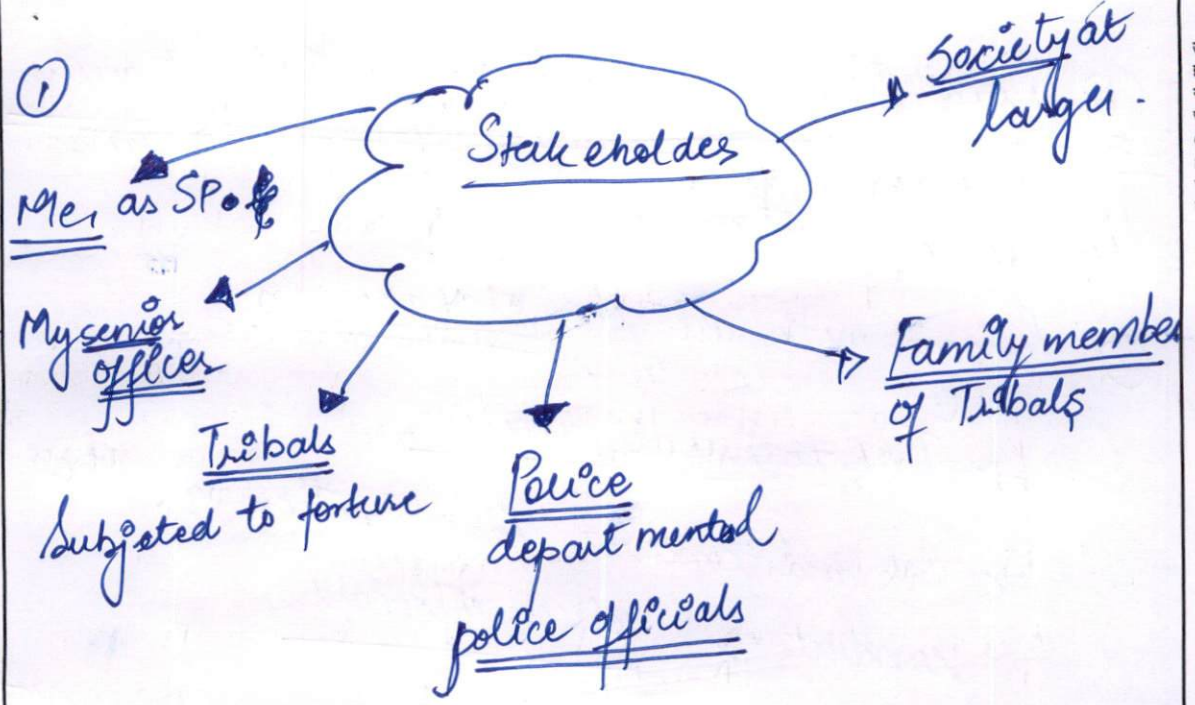 ①
Stakeholdes
Society at
larger.
Me, as SP.
My senior
offices
Tribals
Subjeted to torture
Police
departmental
police officials
Family member
of Tribals